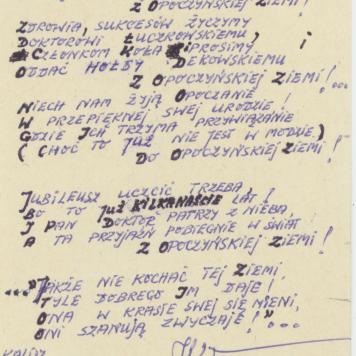 Z OPOCZYŃSKIEJ ZIEMI!
ZDROWIA, SUKCESÓW ŻYCZYMY
DOKTOROWI ŁUCZKOWSKIEMU, I
CZŁONKOM KOŁA I PROSIMY
ODDAĆ HOŁDY DEKOWSKIEMU
Z OPOCZYŃSKIEJ ZIEMI!...
NIECH NAM ŻYJĄ OPOCZANIE
W PRZEPIĘKNEJ SWEJ URODZIE!
GDZIE ICH TRZYMA PRZYWIĄZANIE
(CHOĆ TO JUŻ NIE JEST W MODZIE)
DO OPOCZYŃSKIEJ ZIEMI!
JUBILEUSZ UCZCIĆ TRZEBA,
BO TO JUŻ KILKANAŚCIE LAT!
I PAN DOKTÓR PATRZY Z NIEBA,
A TA PRZYJAŹŃ POBIEGNIE W ŚWIAT
Z OPOCZYŃSKIEJ ZIEMI!
..."JAKŻE NIE KOCHAĆ TEJ ZIEMI,
TYLE DOBREGO IM DAJE!
ONA W KRASIE SWEJ SIĘ MIENI,
ONI SZANUJĄ ZWYCZAJE!"...